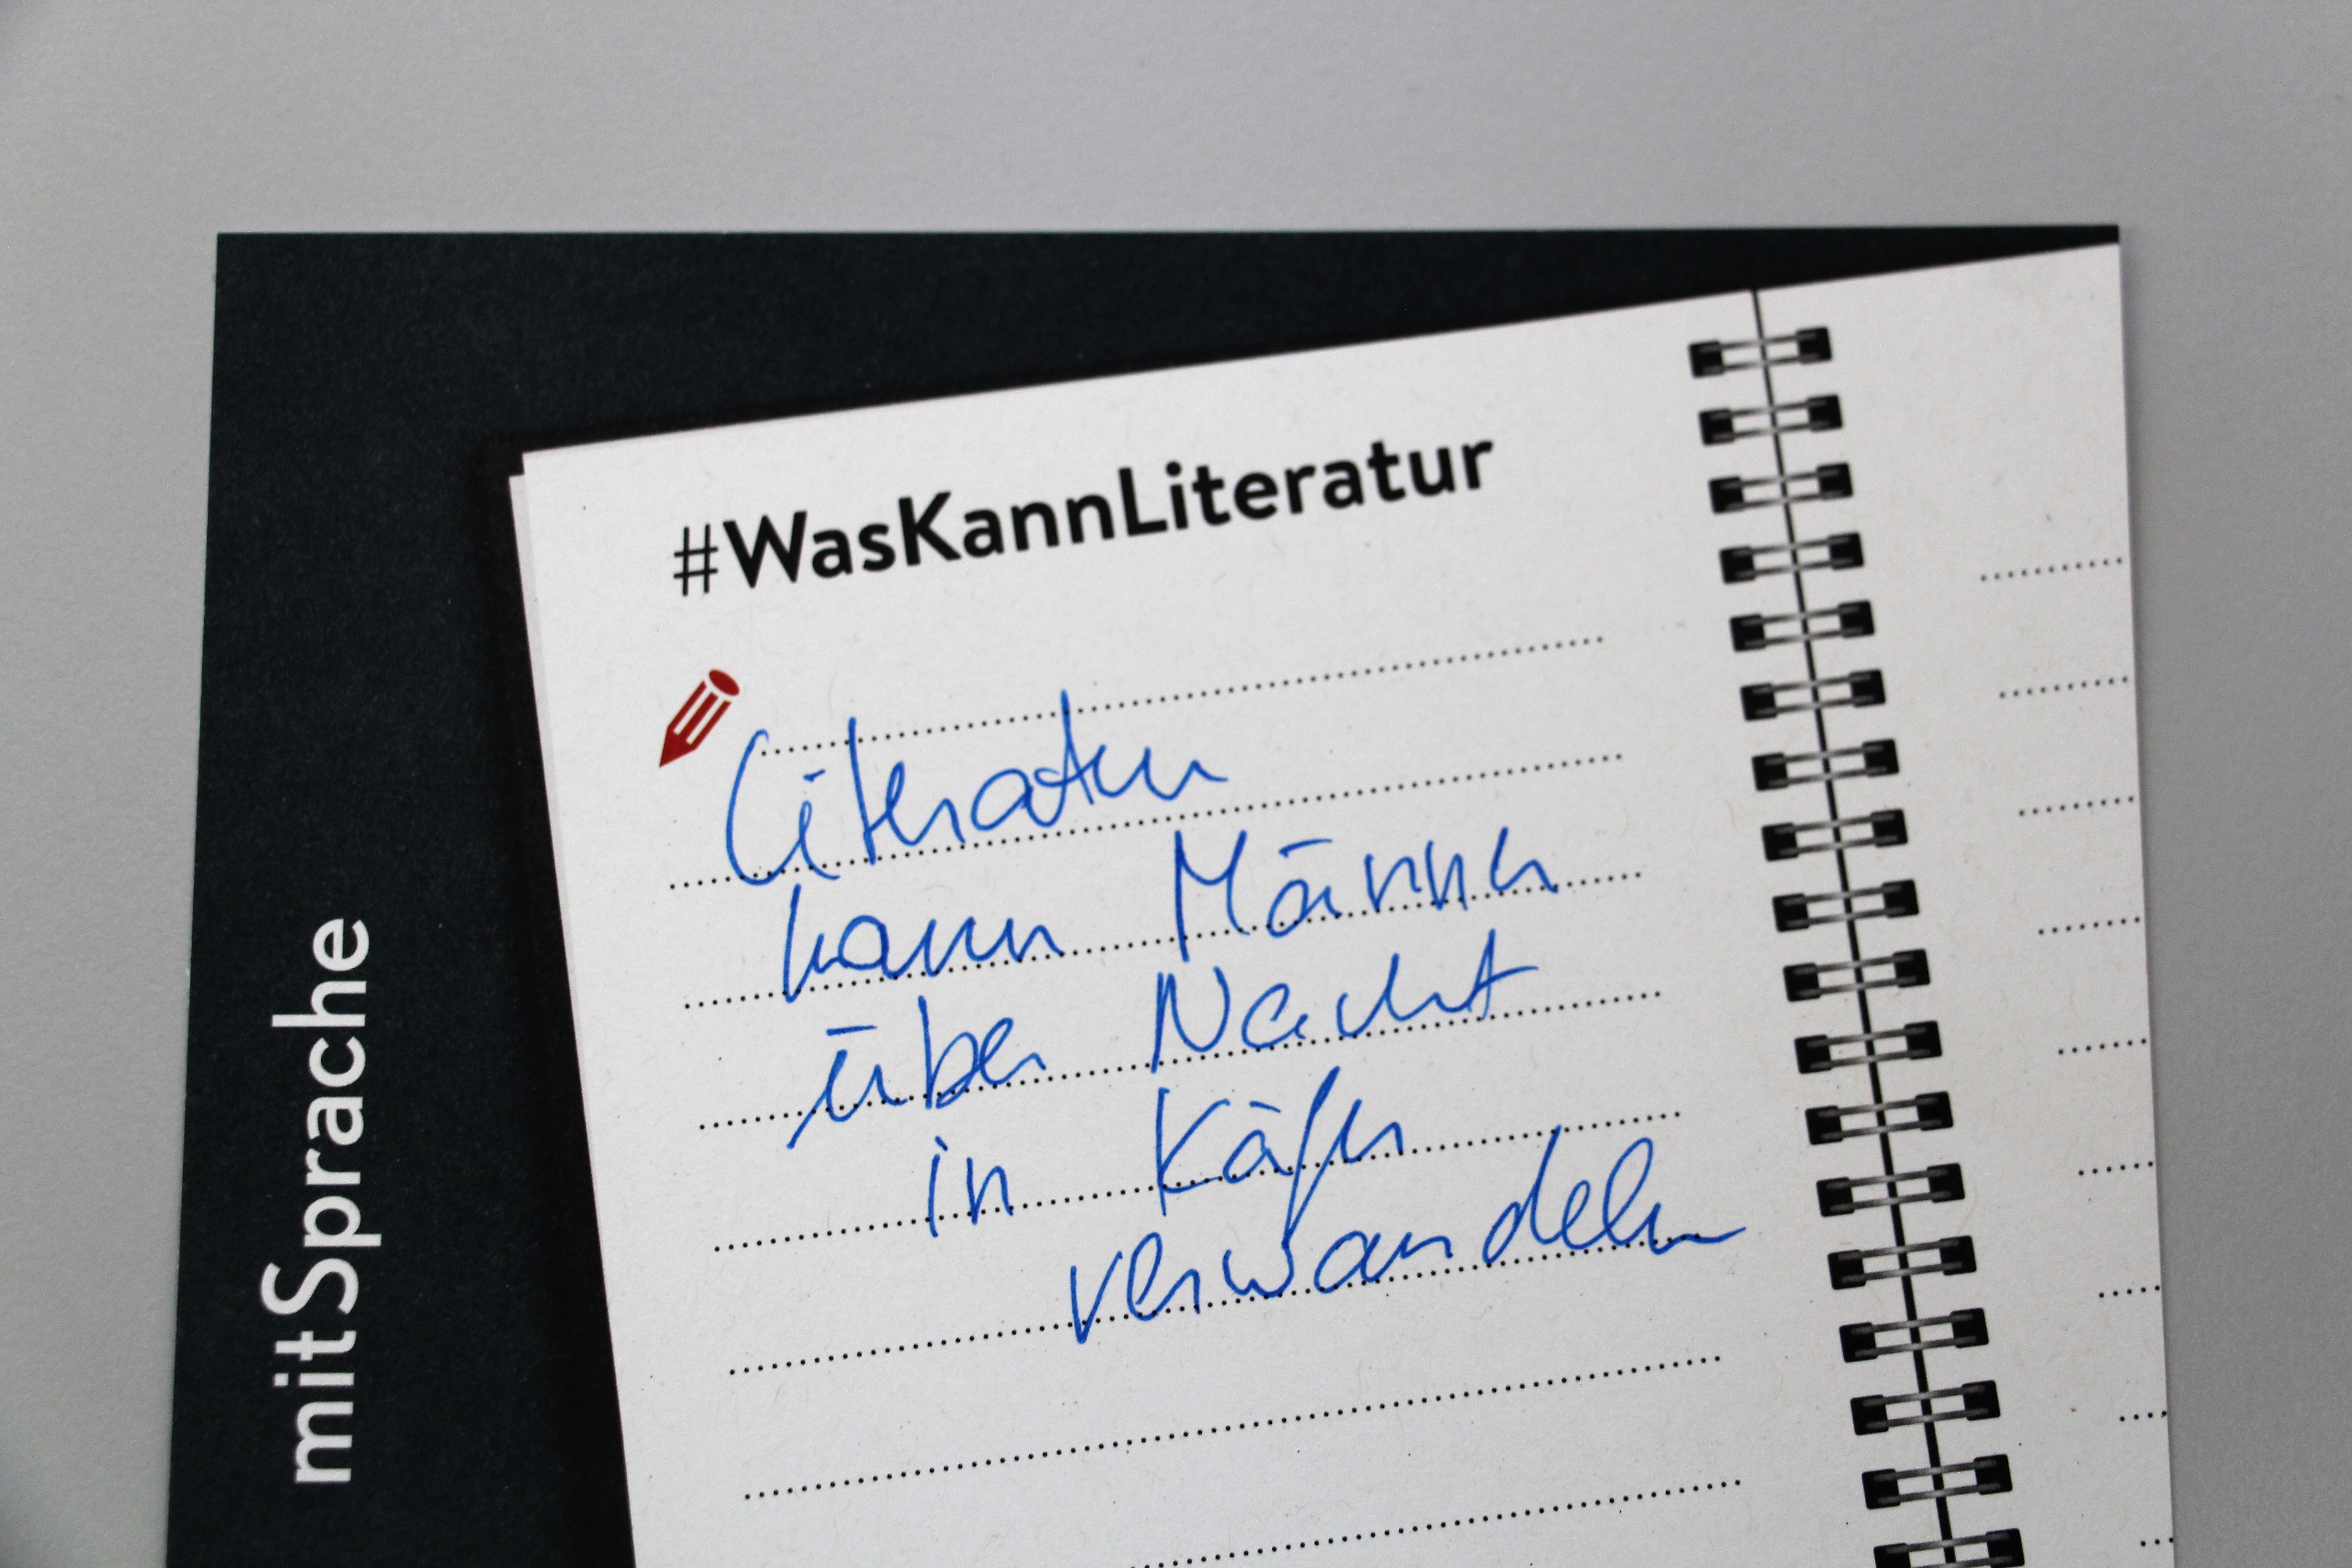 #WasKannLiteratur
Literatur
kann Männer
über Nacht
in Käfer
verwandeln
mitSprache